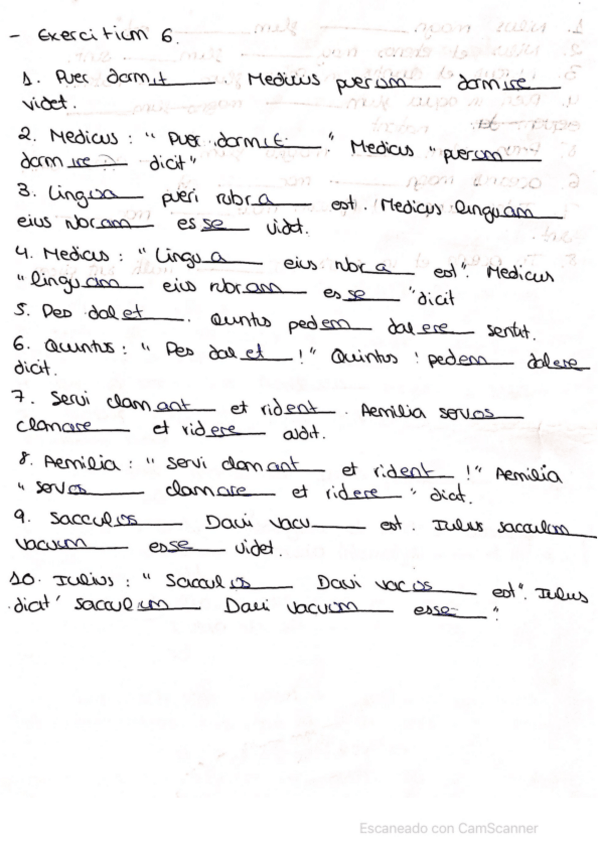 - Exercitium 6.
1. Puer dormit Medicus puerum dormire
videt.
2. Medicus: "Puer dormit." Medicus "puerum
dormire" dicit"
3. Lingua pueri rubra est. Medicus linguam
eius rubram esse videt.
4. Medicus: "Lingua eius rubra est". Medicus
"linguam eius rubram esse "dicit
5. Pes dolet. Quintus pedem dolere sentit.
6. Quintus: "Pes dolet!" Quintus: pedem dolere
dicit.
7. Servi clamant et rident. Aemilia servos
clamare et ridere audit.
8. Aemilia: "Servi clamant et rident!" Aemilia
"servos clamare et ridere" dicit.
9. Sacculus Davi vacu____ est. Iulius sacculum
vacuum esse videt.
10. Iulius: "Sacculus Davi vacus est". Iulius
dicit' sacculum Davi vacuum esse "
Escaneado con CamScanner